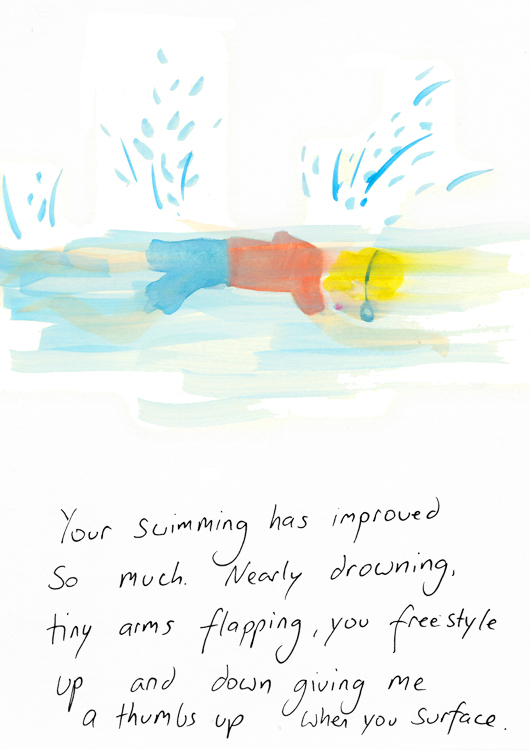 Your swimming has improved
So much. Nearly drowning,
tiny arms flapping, you freestyle
up and down giving me
a thumbs up when you surface.